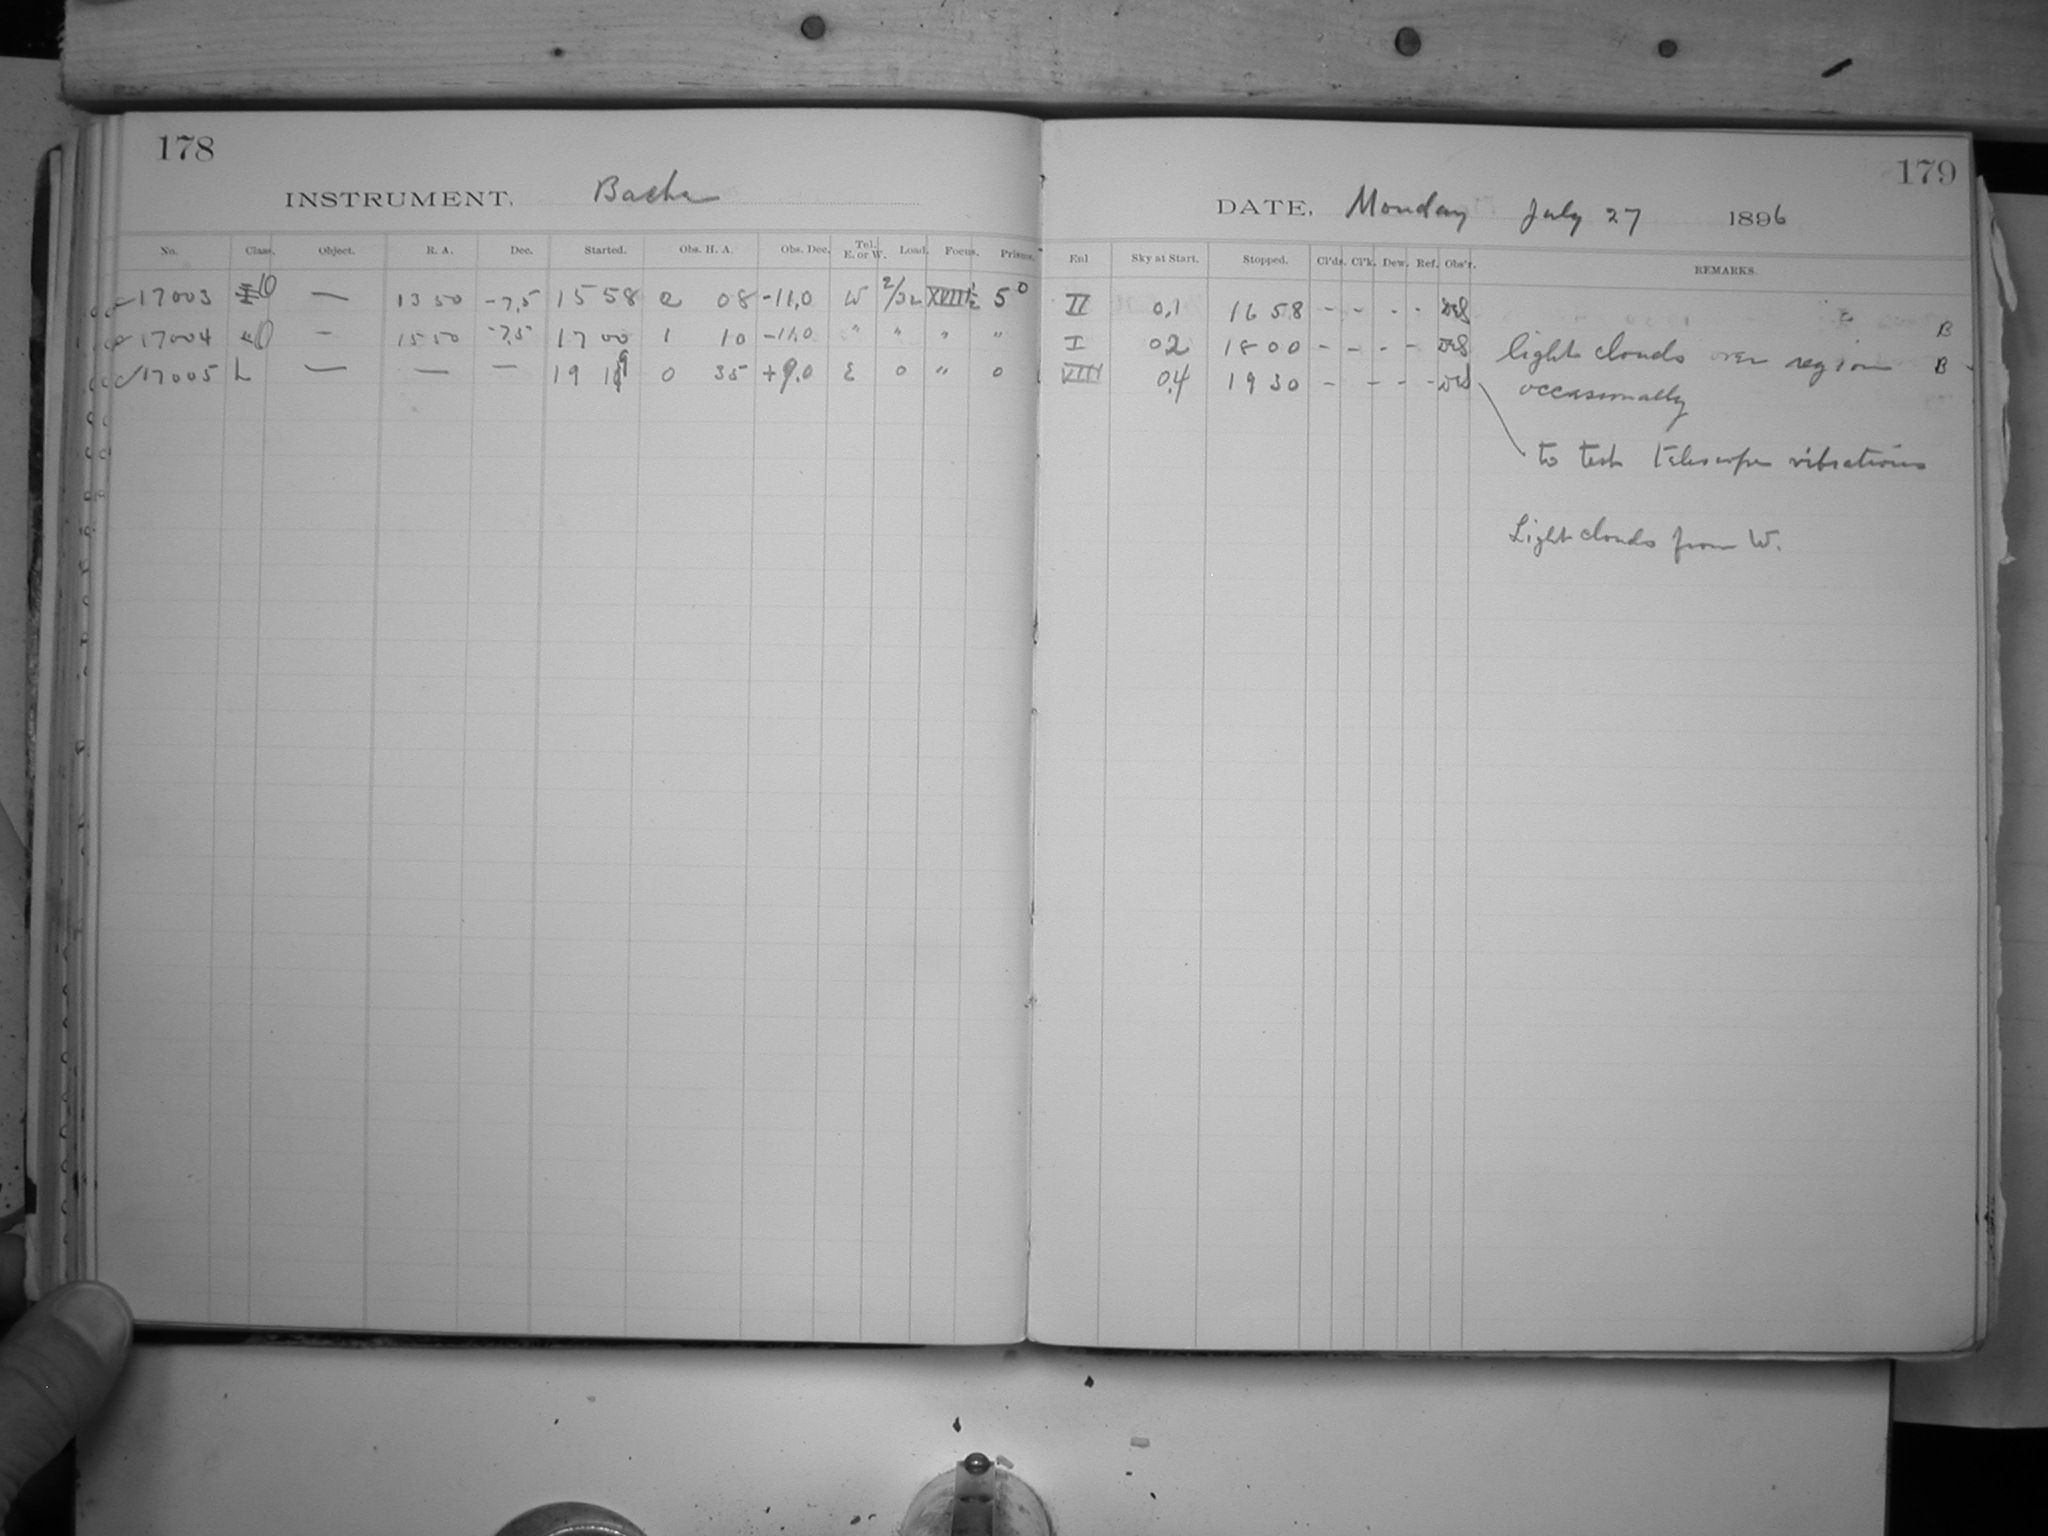 178
INSTRUMENT. Bache
No. Class. Object. R. A. Dec. Started. Obs. H. A. Obs. Dec. Tel. E. or W. Load. Focus. Prisms.
17003 — 13 50 -7.5 15 58 2 08 -11.0 W 2/32 XVIII½ 5°
17004 — 15 50 -7.5 17 00 1 10 -11.0 " " " "
17005 L — — — 19 19 0 35 +9.0 E 0 " 0
179
DATE, Monday July 27 1896
Enl Sky at Start. Stopped. Cl'ds. Cl'k. Dew. Ref. Obs'r. REMARKS.
II 0.1 16 58 - - - - B
I 02 18 00 - - - - light clouds over region B
VIII 0.4 19 30 - - - - occasionally
to test Telescope vibrations
Light clouds from W.